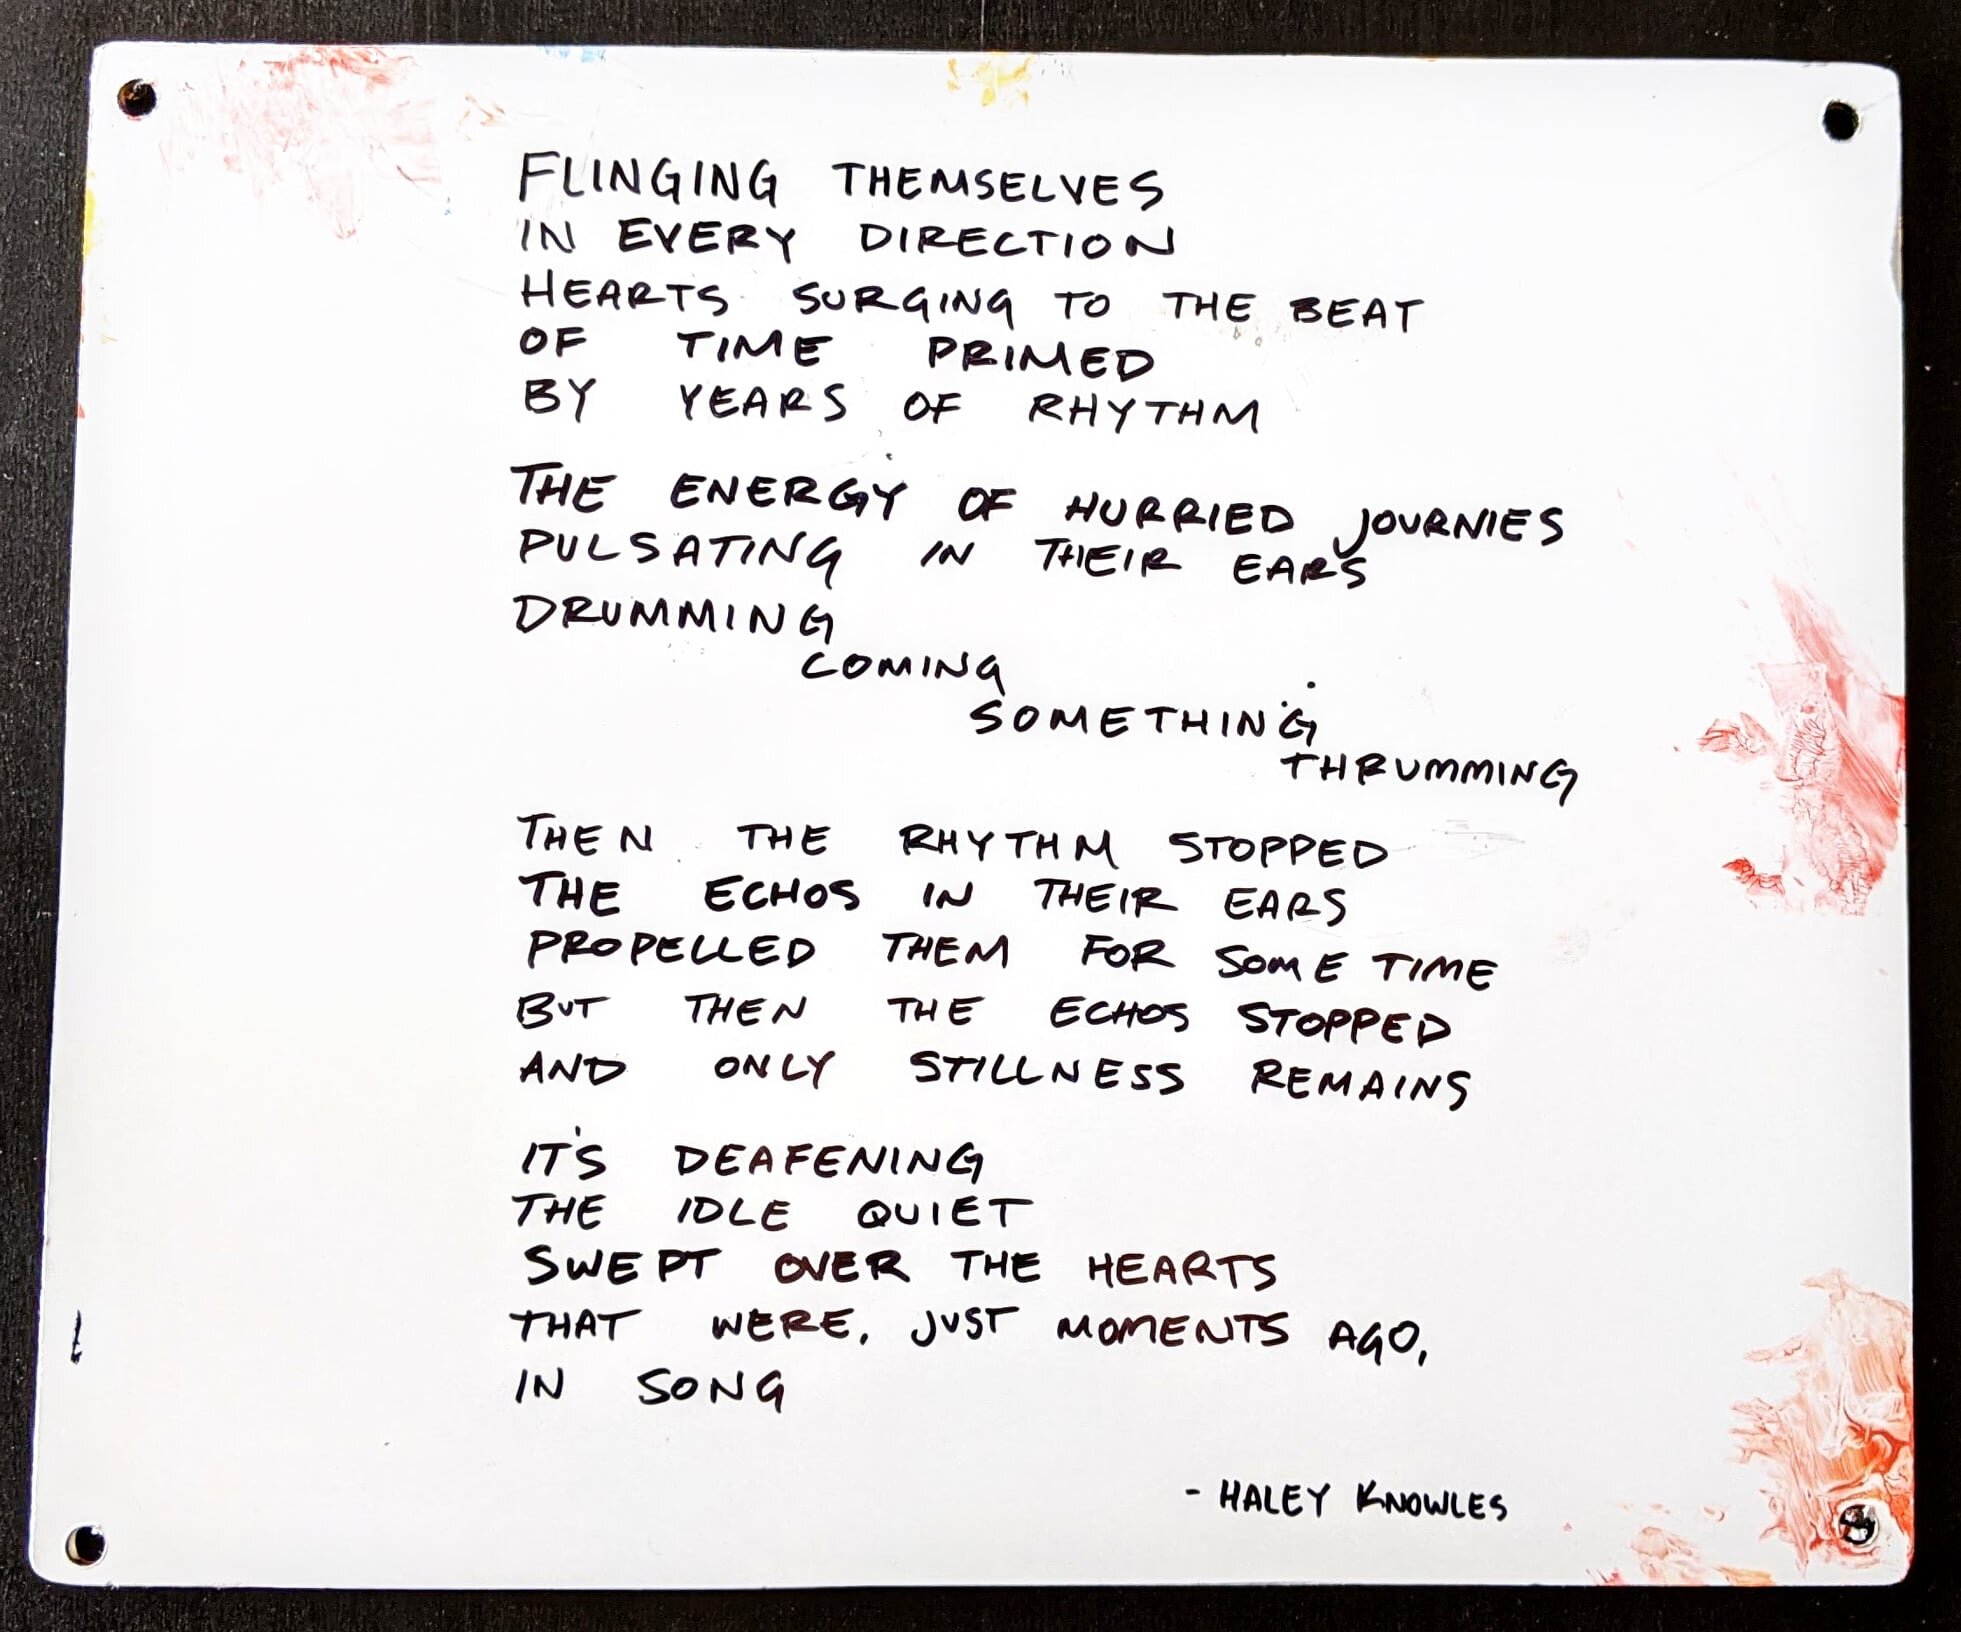 FLINGING THEMSELVES
IN EVERY DIRECTION
HEARTS SURGING TO THE BEAT
OF TIME PRIMED
BY YEARS OF RHYTHM
THE ENERGY OF HURRIED JOURNIES
PULSATING IN THEIR EARS
DRUMMING
COMING
SOMETHING
THRUMMING
THEN THE RHYTHM STOPPED
THE ECHOS IN THEIR EARS
PROPELLED THEM FOR SOME TIME
BUT THEN THE ECHOS STOPPED
AND ONLY STILLNESS REMAINS
IT'S DEAFENING
THE IDLE QUIET
SWEPT OVER THE HEARTS
THAT WERE, JUST MOMENTS AGO,
IN SONG
- HALEY KNOWLES